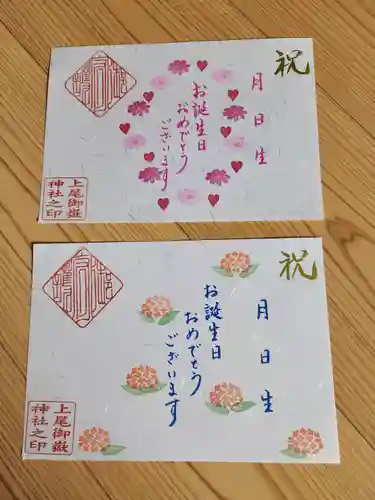 祝
月 日 生
お誕生日
おめでとう
ございます
上尾御嶽
神社之印
祝
月 日 生
お誕生日
おめでとう
ございます
上尾御嶽
神社之印